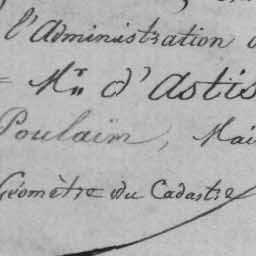 l'Administration
Mr d'Astis
Poulain, Mai
Géomètre du Cadastre